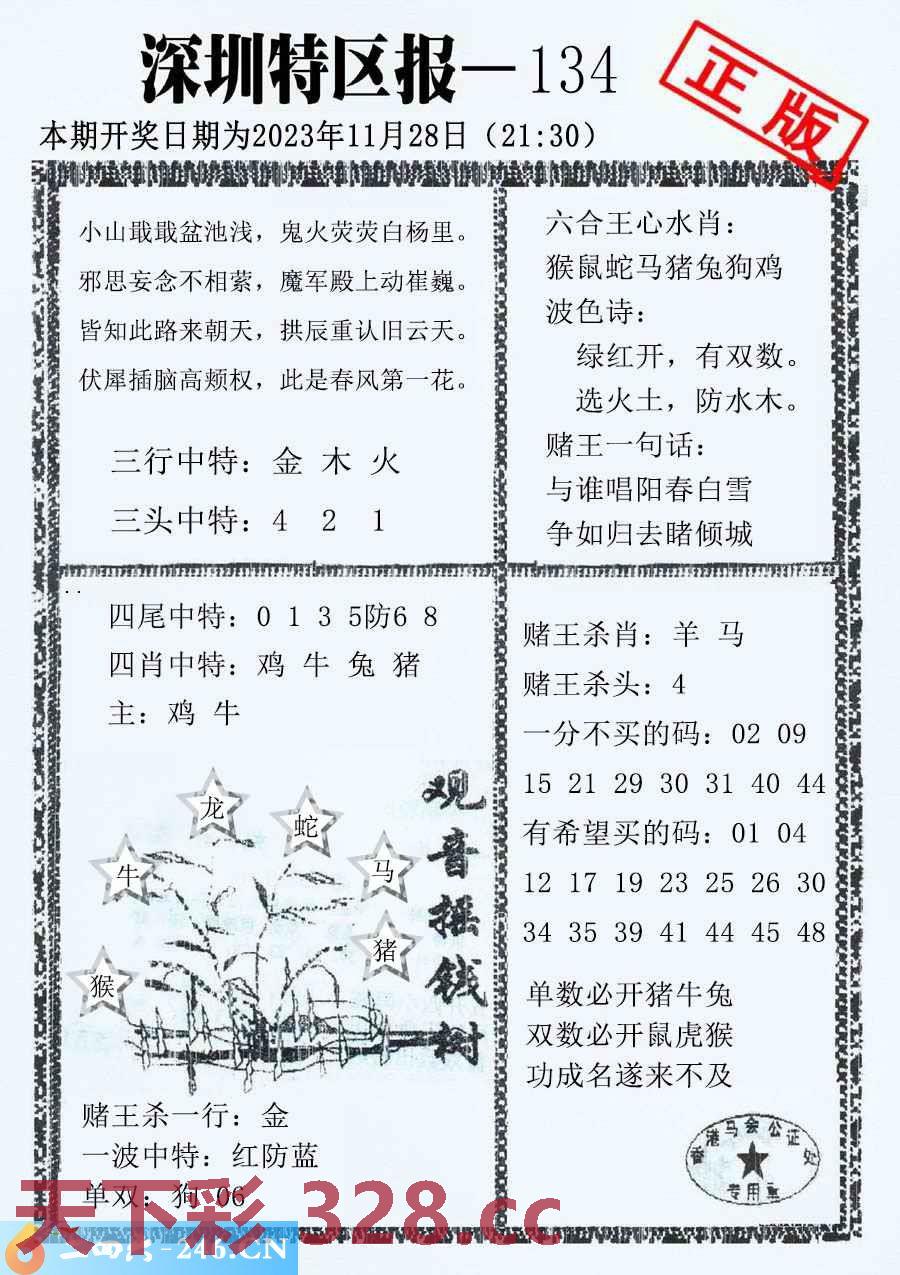 深圳特区报—134
正版
本期开奖日期为2023年11月28日（21:30）
小山戢戢盆池浅，鬼火荧荧白杨里。
邪思妄念不相萦，魔军殿上动崔巍。
皆知此路来朝天，拱辰重认旧云天。
伏犀插脑高颊权，此是春风第一花。
三行中特：金 木 火
三头中特：4 2 1
六合王心水肖：
猴鼠蛇马猪兔狗鸡
波色诗：
绿红开，有双数。
选火土，防水木。
赌王一句话：
与谁唱阳春白雪
争如归去睹倾城
四尾中特：0 1 3 5防6 8
四肖中特：鸡 牛 兔 猪
主：鸡 牛
龙
蛇
牛
马
猪
猴
观音摇钱树
赌王杀一行：金
一波中特：红防蓝
单双：狗 06
赌王杀肖：羊 马
赌王杀头：4
一分不买的码：02 09
15 21 29 30 31 40 44
有希望买的码：01 04
12 17 19 23 25 26 30
34 35 39 41 44 45 48
单数必开猪牛兔
双数必开鼠虎猴
功成名遂来不及
香港马会公证处
专用章
天下彩 328.cc
-246.CN